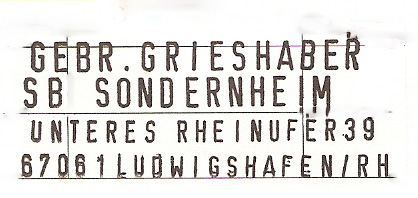 GEBR.GRIESHABER
SB SONDERNHEIM
UNTERES RHEINUFER39
67061LUDWIGSHAFEN/RH